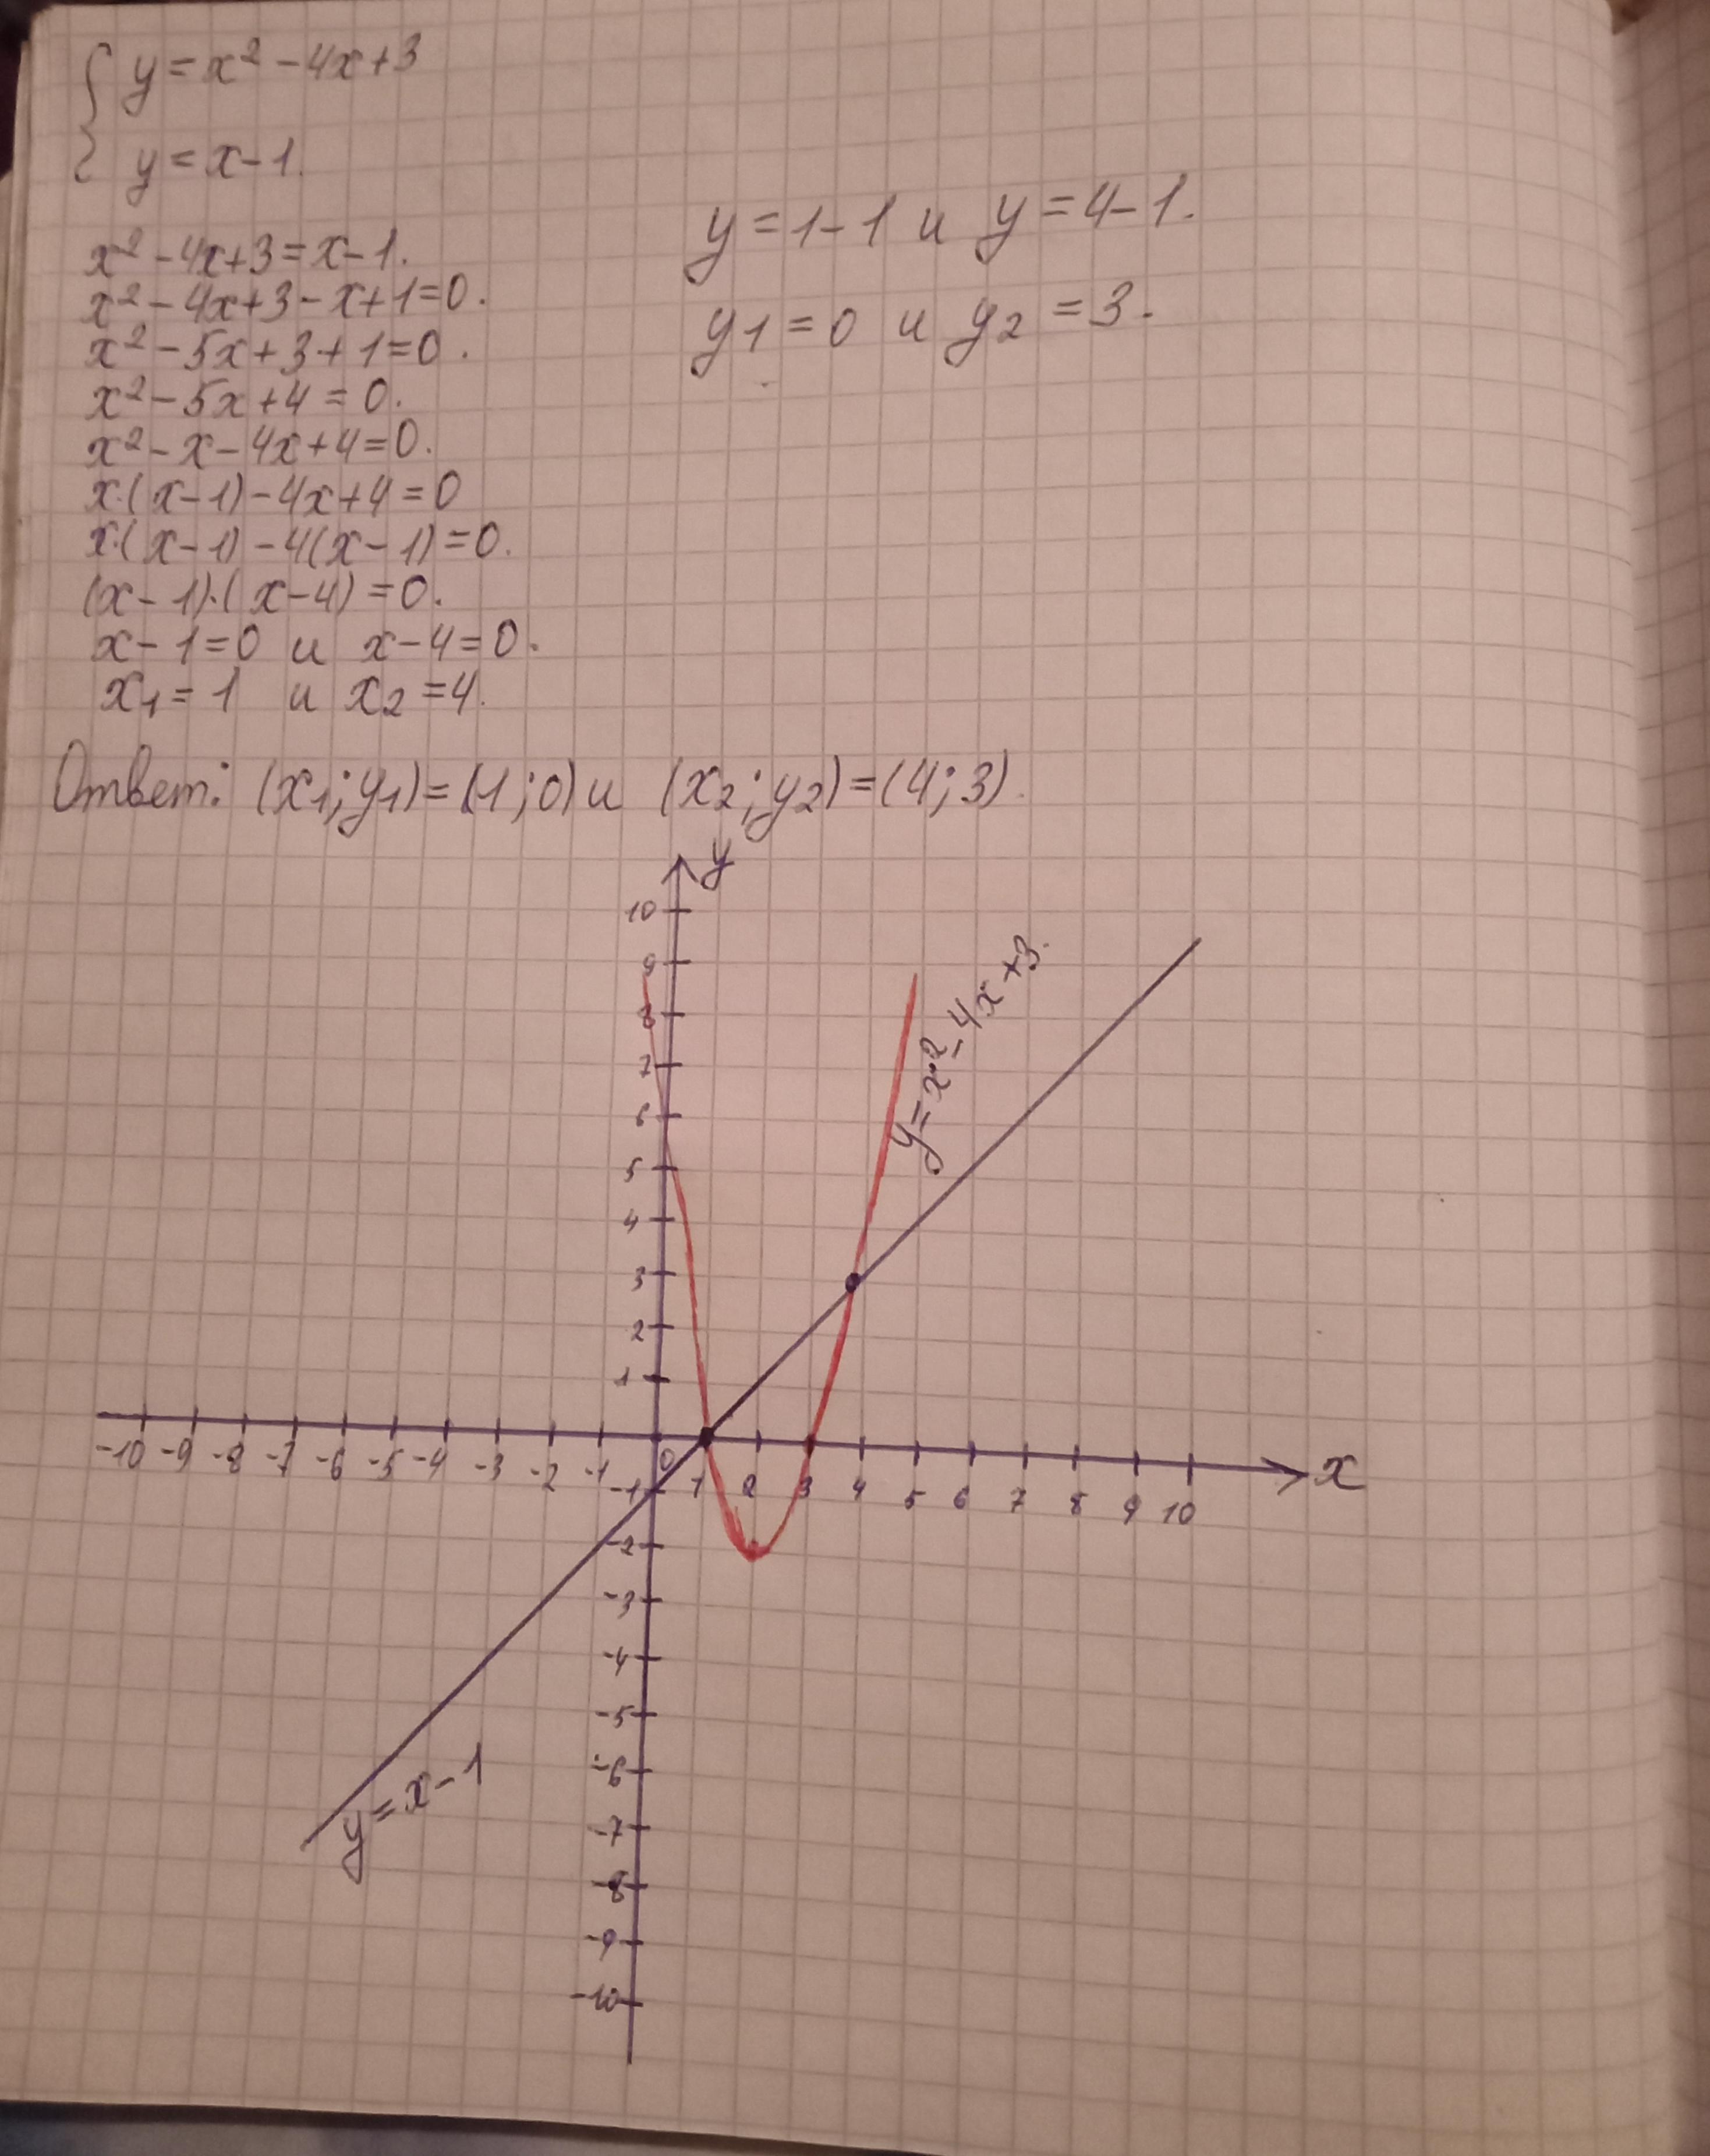 y = x² - 4x + 3
y = x - 1.
x² - 4x + 3 = x - 1.
x² - 4x + 3 - x + 1 = 0.
x² - 5x + 3 + 1 = 0.
x² - 5x + 4 = 0.
x² - x - 4x + 4 = 0.
x·(x - 1) - 4x + 4 = 0
x·(x - 1) - 4(x - 1) = 0.
(x - 1)·(x - 4) = 0.
x - 1 = 0 и x - 4 = 0.
x₁ = 1 и x₂ = 4.
y = 1 - 1 и y = 4 - 1.
y₁ = 0 и y₂ = 3.
Ответ: (x₁; y₁) = (1; 0) и (x₂; y₂) = (4; 3).
y
10
9
8
7
6
5
4
3
2
1
y = x² - 4x + 3.
-10 -9 -8 -7 -6 -5 -4 -3 -2 -1 0 1 2 3 4 5 6 7 8 9 10 x
-1
-2
-3
-4
-5
-6
-7
-8
-9
-10
y = x - 1